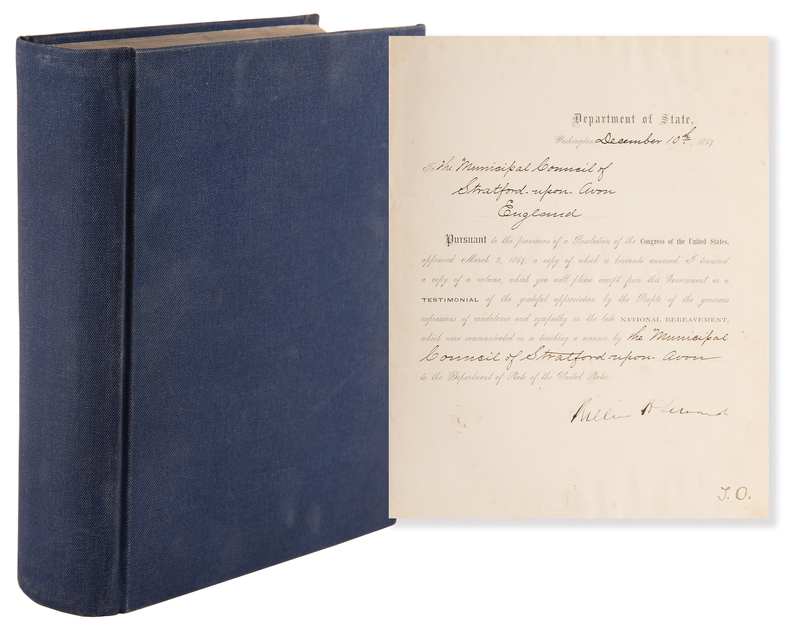 Department of State,
Washington, December 10th, 1867.
To the Municipal Council of
Stratford-upon-Avon
England
Pursuant to the provisions of a Resolution of the Congress of the United States,
approved March 2, 1867, a copy of which is hereunto annexed, I transmit
a copy of a volume, which you will please accept from this Government as a
TESTIMONIAL of the grateful appreciation by the People of the generous
expressions of condolence and sympathy in the late NATIONAL BEREAVEMENT,
which were communicated in so touching a manner by the Municipal
Council of Stratford-upon-Avon
to the Department of State of the United States.
William H Seward
T.O.